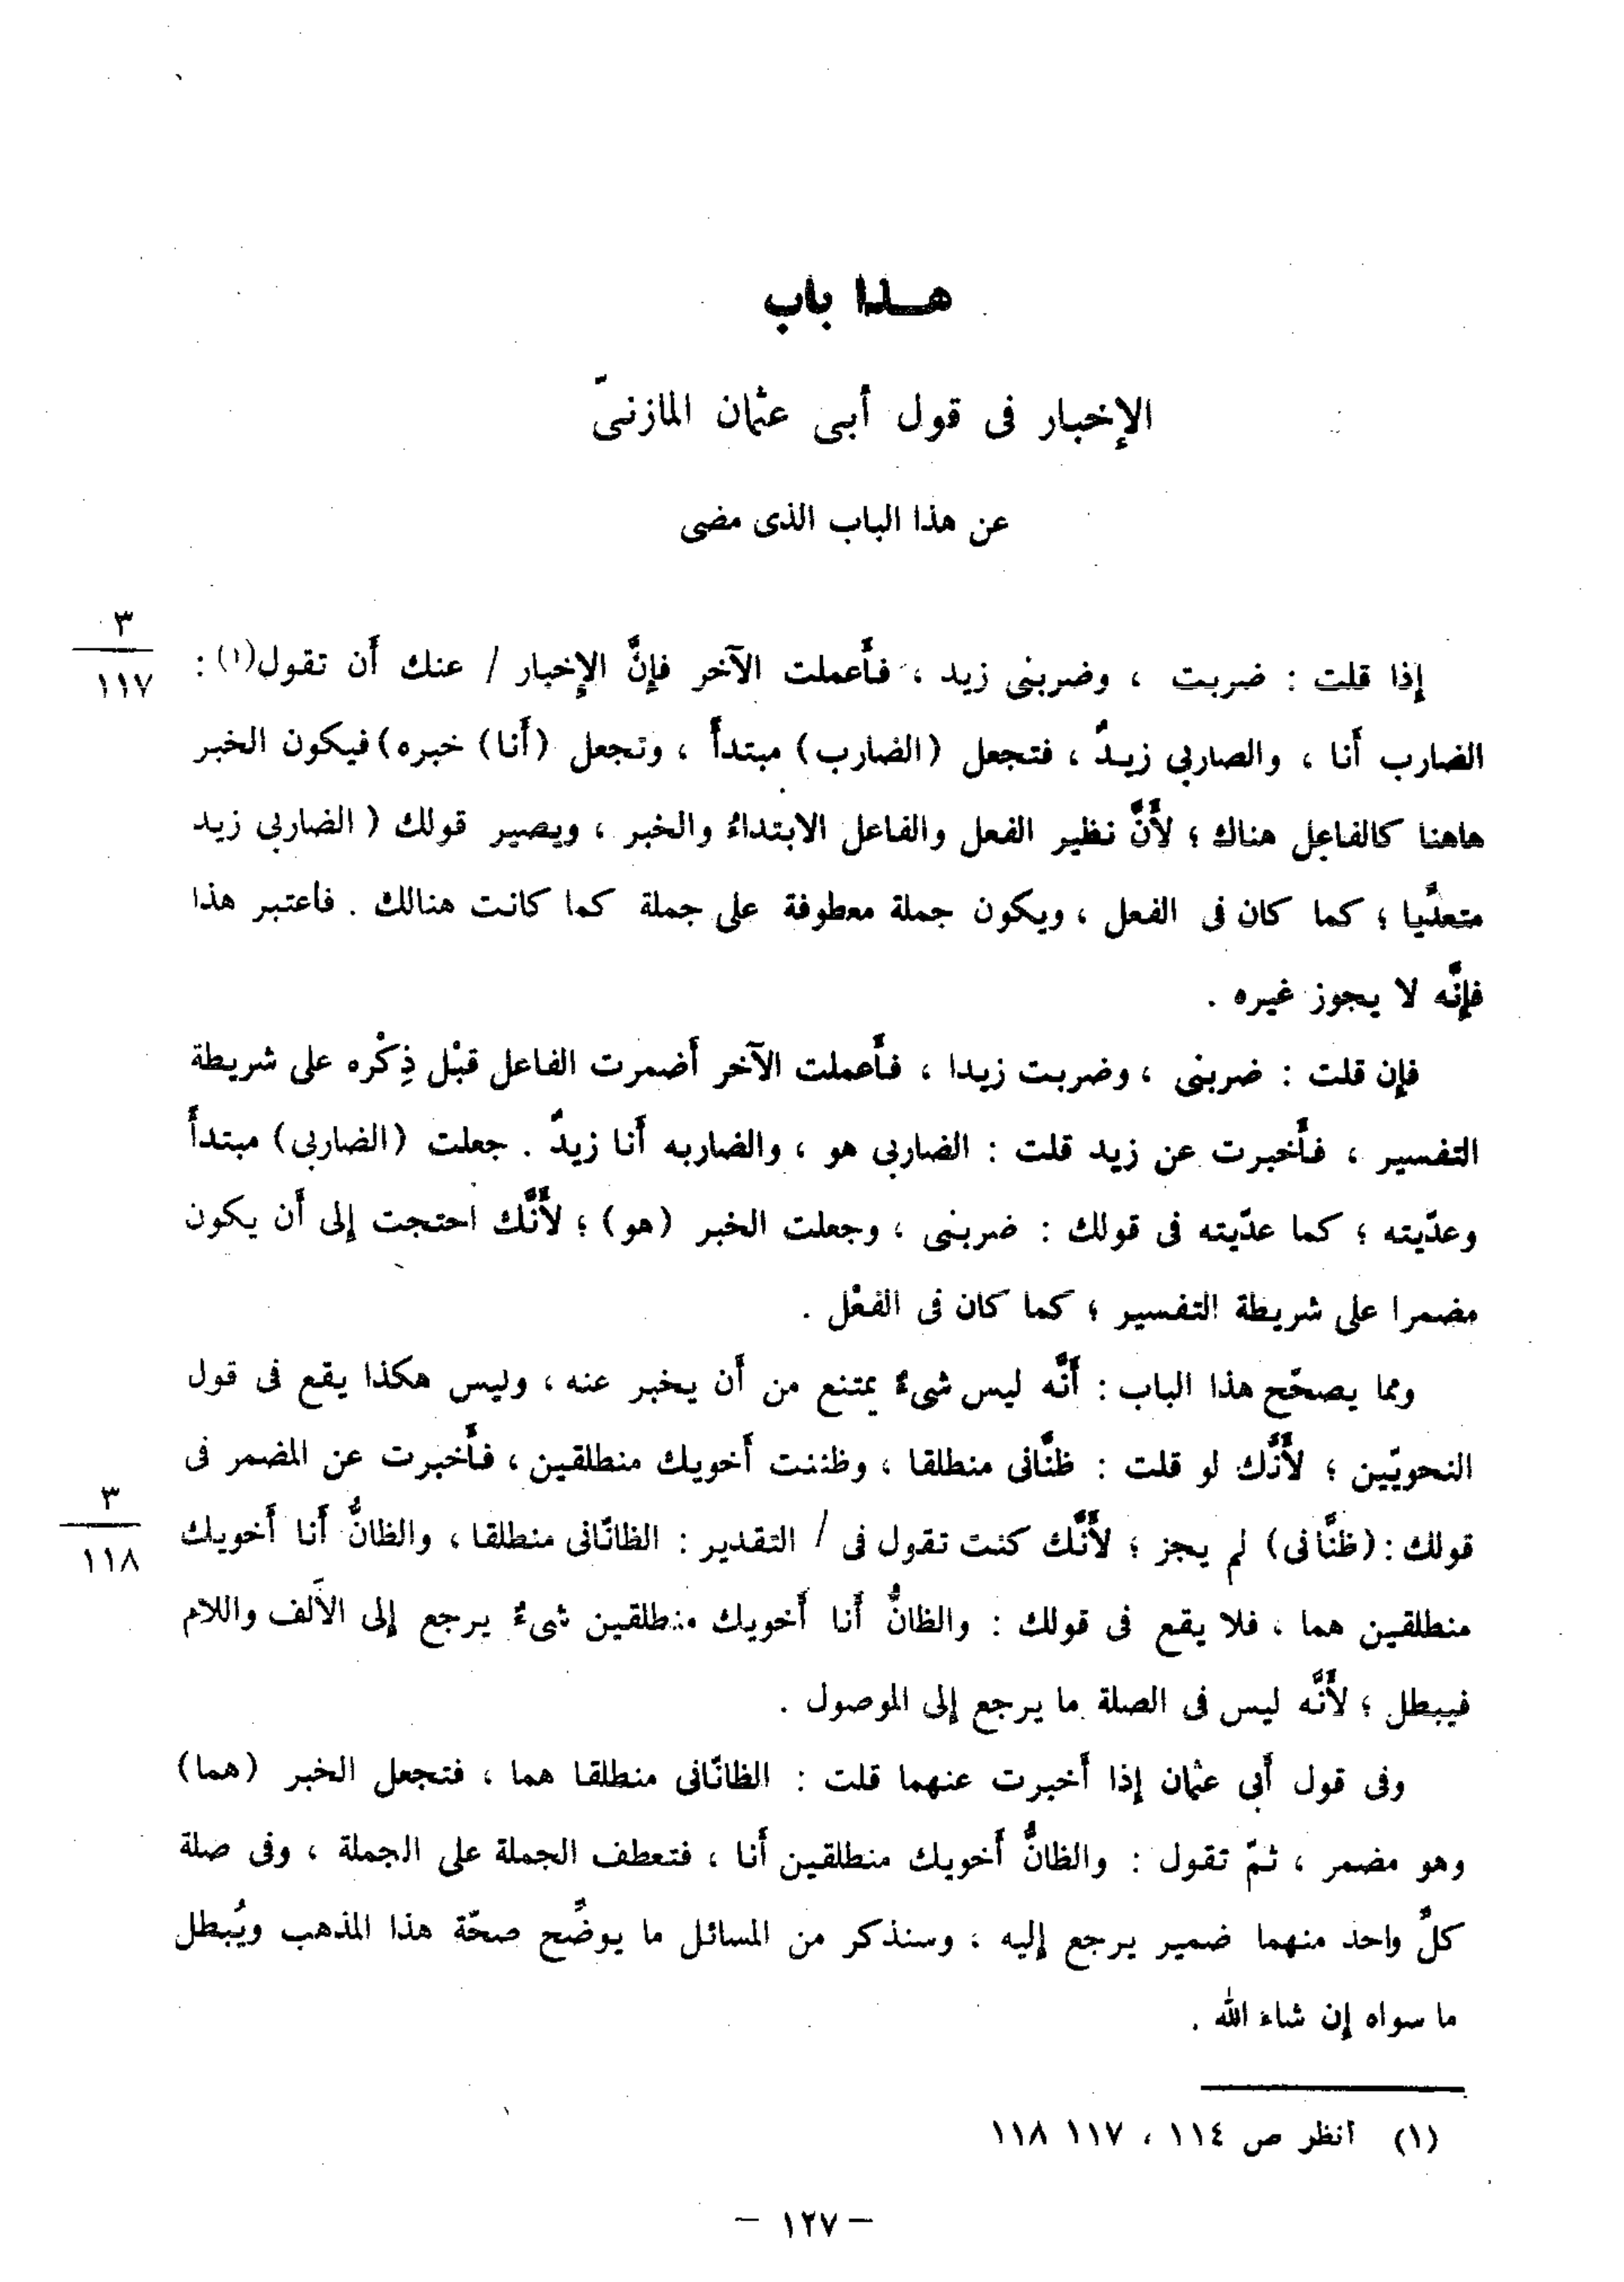 هـذا باب
الإخبار فى قول أبى عثمان المازنىّ
عن هذا الباب الذى مضى
٣
١١٧
إذا قلت : ضربت ، وضربنى زيد ، فأَعملت الآخر فإنَّ الإِخبار / عنك أَن تقول(١) :
الضارب أَنا ، والصاربى زيـدٌ ، فتجعل (الضارب) مبتدأً ، وتجعل (أَنا) خبره) فيكون الخبر
هاهنا كالفاعِل هناك ؛ لأَنَّ نظير الفعل والفاعل الابتداءُ والخبر ، ويصير قولك ( الضاربى زيد
متعدّيا ؛ كما كان فى الفعل ، ويكون جملة معطوفة على جملة كما كانت هنالك . فاعتبر هذا
فإنَّه لا يجوز غيره .
فإن قلت : ضربنى ، وضربت زيدا ، فأَعملت الآخر أَضمرت الفاعل قبْل ذِكْره على شريطة
التفسير ، فأَخبرت عن زيد قلت : الضاربى هو ، والضاربه أَنا زيدٌ . جعلت (الضاربى) مبتدأً
وعدّيته ؛ كما عدّيته فى قولك : ضربنى ، وجعلت الخبر (هو) ؛ لأَنَّك احتجت إلى أَن يكون
مضمرا على شريطة التفسير ؛ كما كان فى الفعْل .
ومما يصحّح هذا الباب : أَنَّه ليس شىءٌ يمتنع من أَن يخبر عنه ، وليس هكذا يقع فى قول
النحويّين ؛ لأَنَّك لو قلت : ظنَّانى منطلقا ، وظننت أَخويك منطلقين ، فأَخبرت عن المضمر فى
٣
١١٨
قولك : (ظنَّانى) لم يجز ؛ لأَنَّك كنت تقول فى / التقدير : الظانّانى منطلقا ، والظانُّ أَنا أَخويك
منطلقين هما ، فلا يقع فى قولك : والظانُّ أَنا أَخويك منطلقين شىءٌ يرجع إلى الأَلف واللام
فيبطل ؛ لأَنَّه ليس فى الصلة ما يرجع إلى الموصول .
وفى قول أَبى عثمان إذا أَخبرت عنهما قلت : الظانّانى منطلقا هما ، فتجعل الخبر (هما)
وهو مضمر ، ثمّ تقول : والظانُّ أَخويك منطلقين أَنا ، فتعطف الجملة على الجملة ، وفى صلة
كلِّ واحد منهما ضمير يرجع إليه ، وسنذكر من المسائل ما يوضِّح صحّة هذا المذهب ويُبطل
ما سواه إن شاء الله .
(١) انظر ص ١١٤ ، ١١٧ ١١٨
– ١٢٧ –